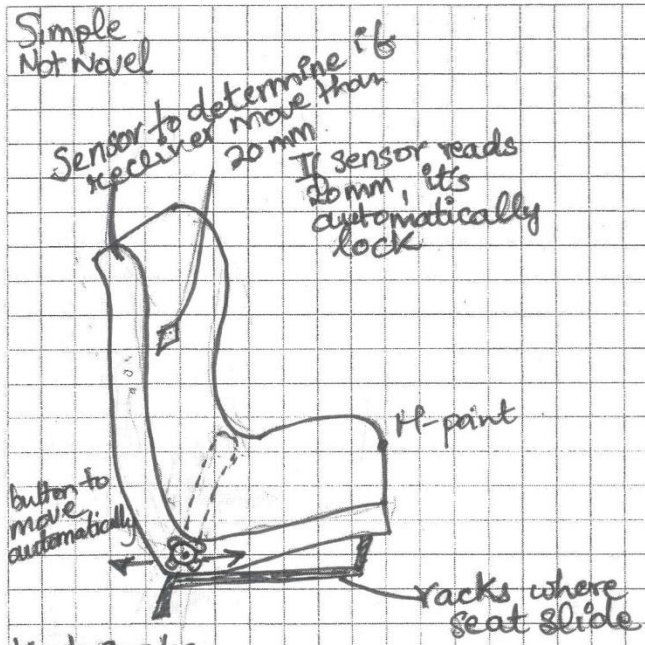 Simple
Not Novel
Sensor to determine if
recliner move than
20 mm
If sensor reads
20mm, it's
automatically
lock
H-point
button to
move
automatically
racks where
seat slide